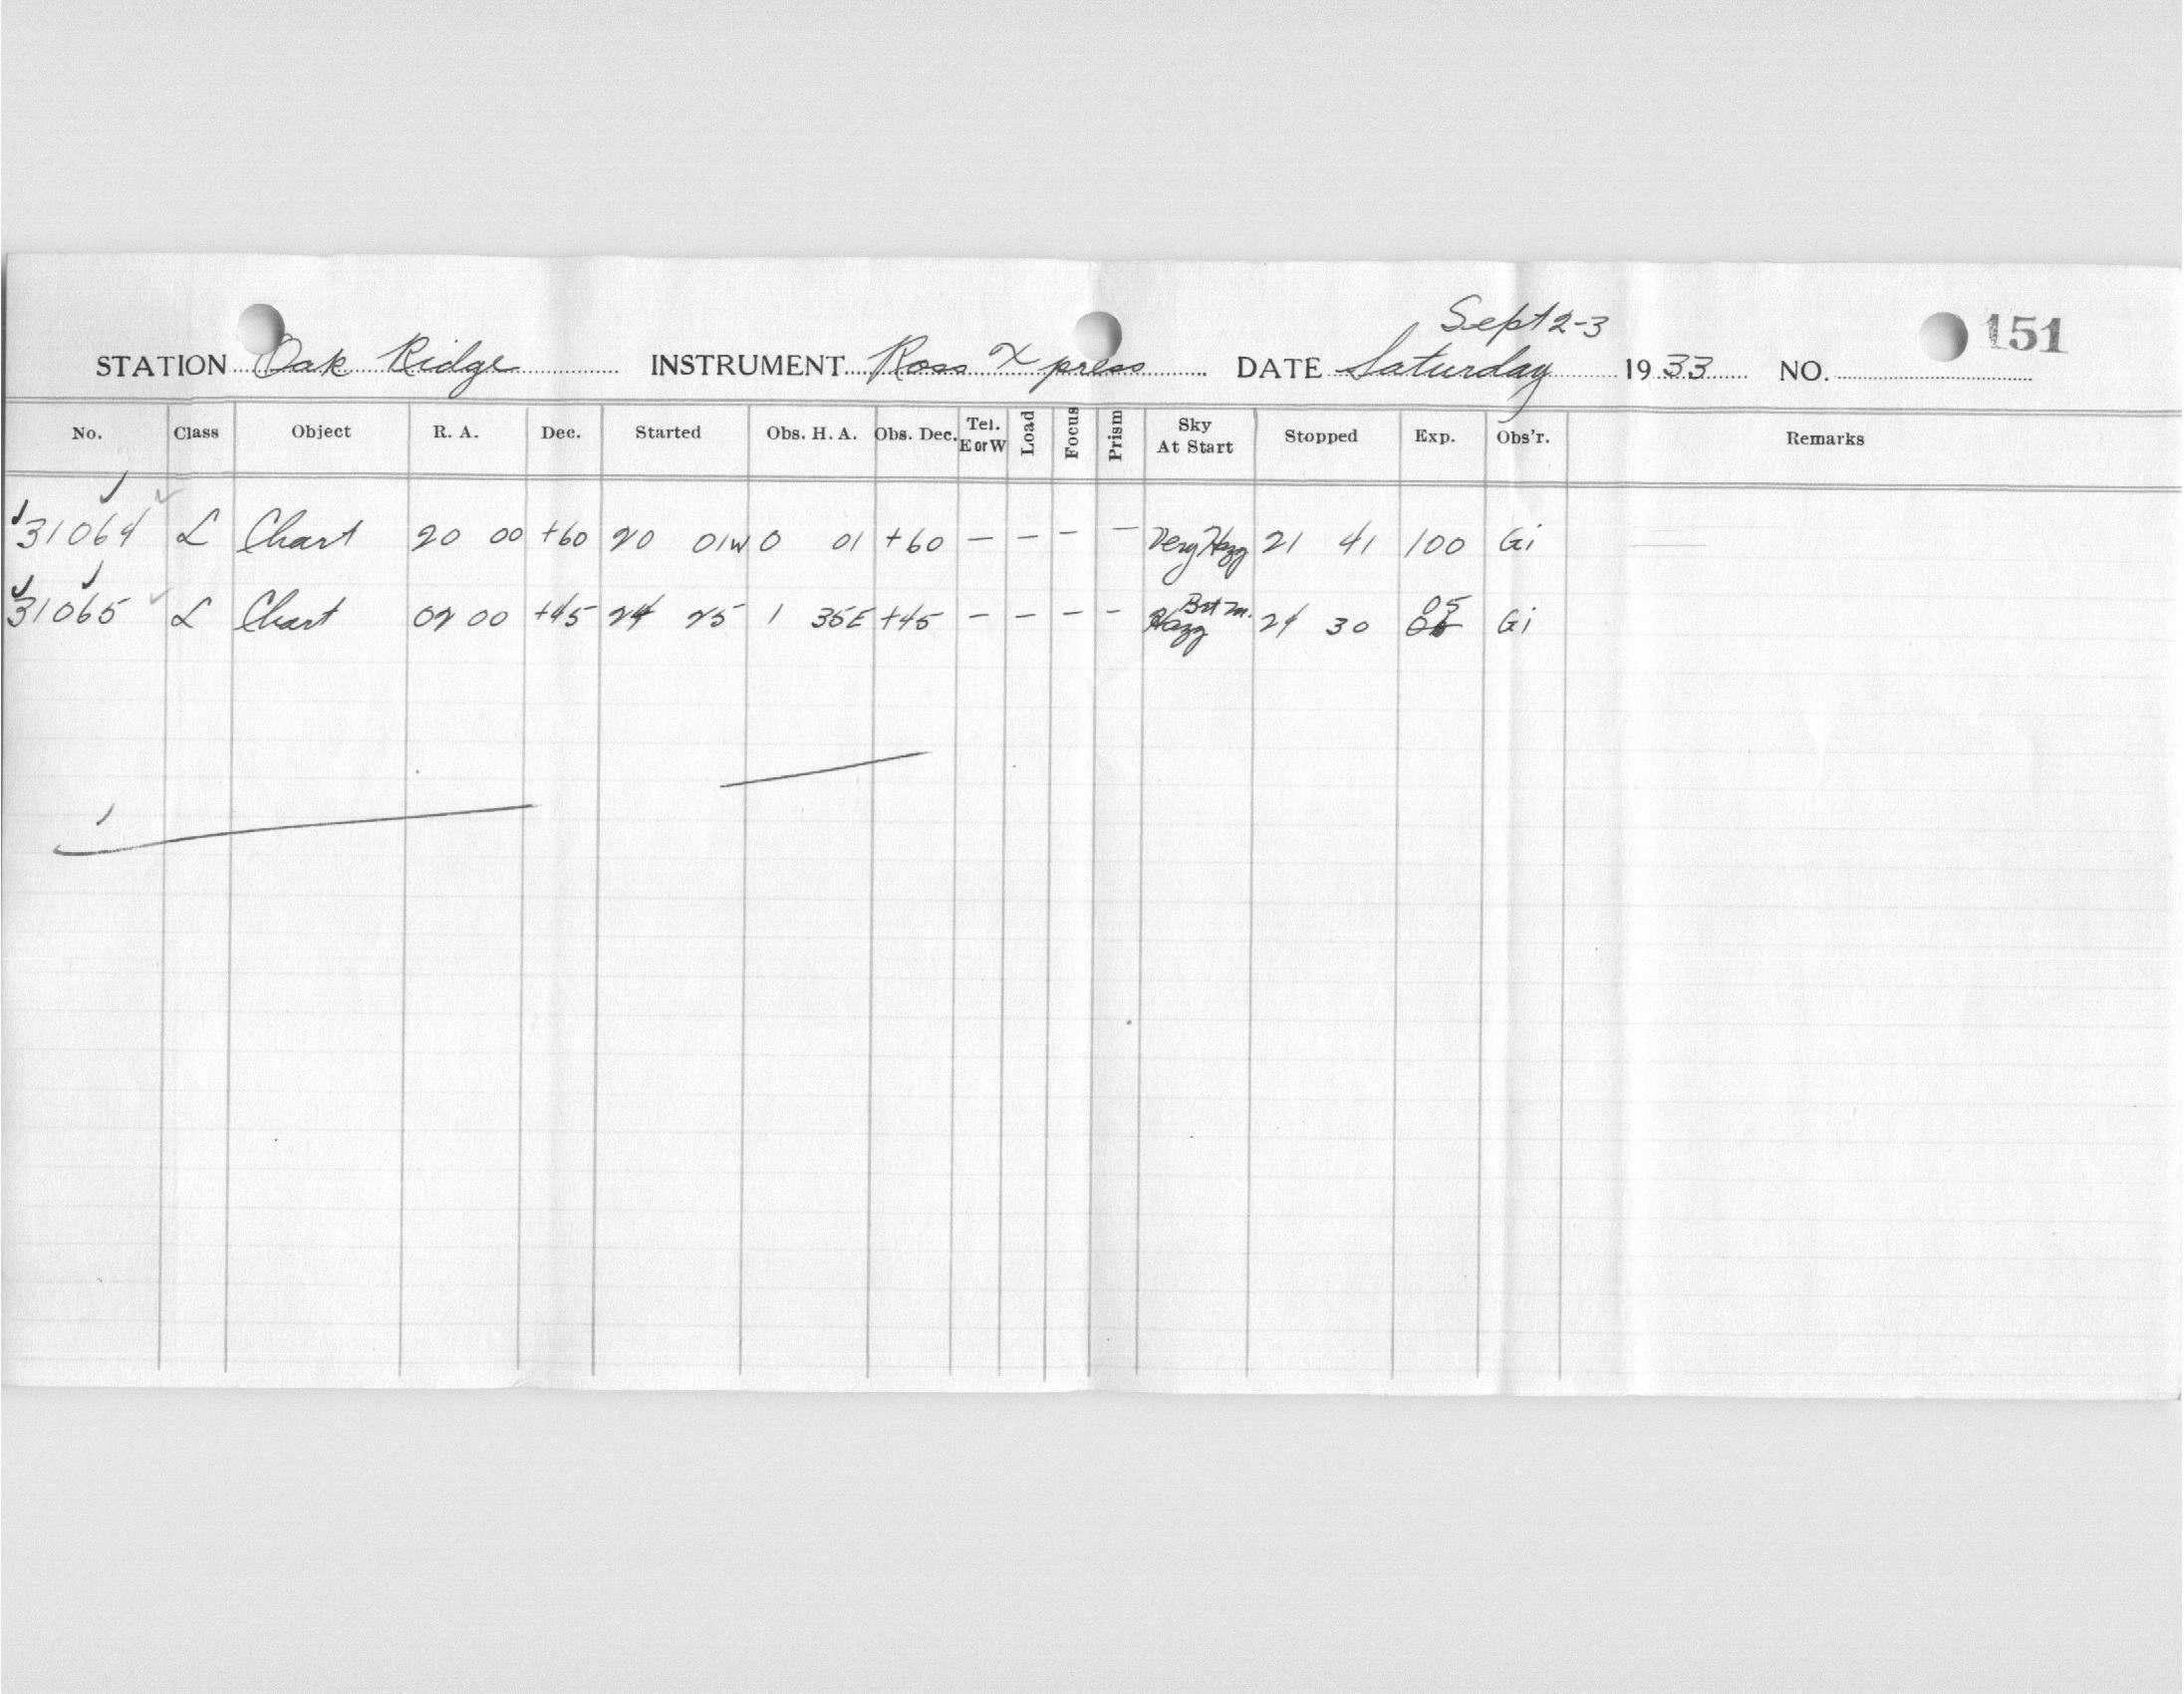 Sept 2-3
STATION Oak Ridge INSTRUMENT Ross Xpress DATE Saturday 1933 NO. 151
No. Class Object R. A. Dec. Started Obs. H. A. Obs. Dec. Tel. E or W Load Focus Prism Sky At Start Stopped Exp. Obs'r. Remarks
31064 L Chart 20 00 +60 20 01 W 0 01 +60 — — — — Very Hazy 21 41 100 Gi
31065 L Chart 02 00 +45 24 25 1 35E +45 — — — — Brt m. Hazy 24 30 05 Gi